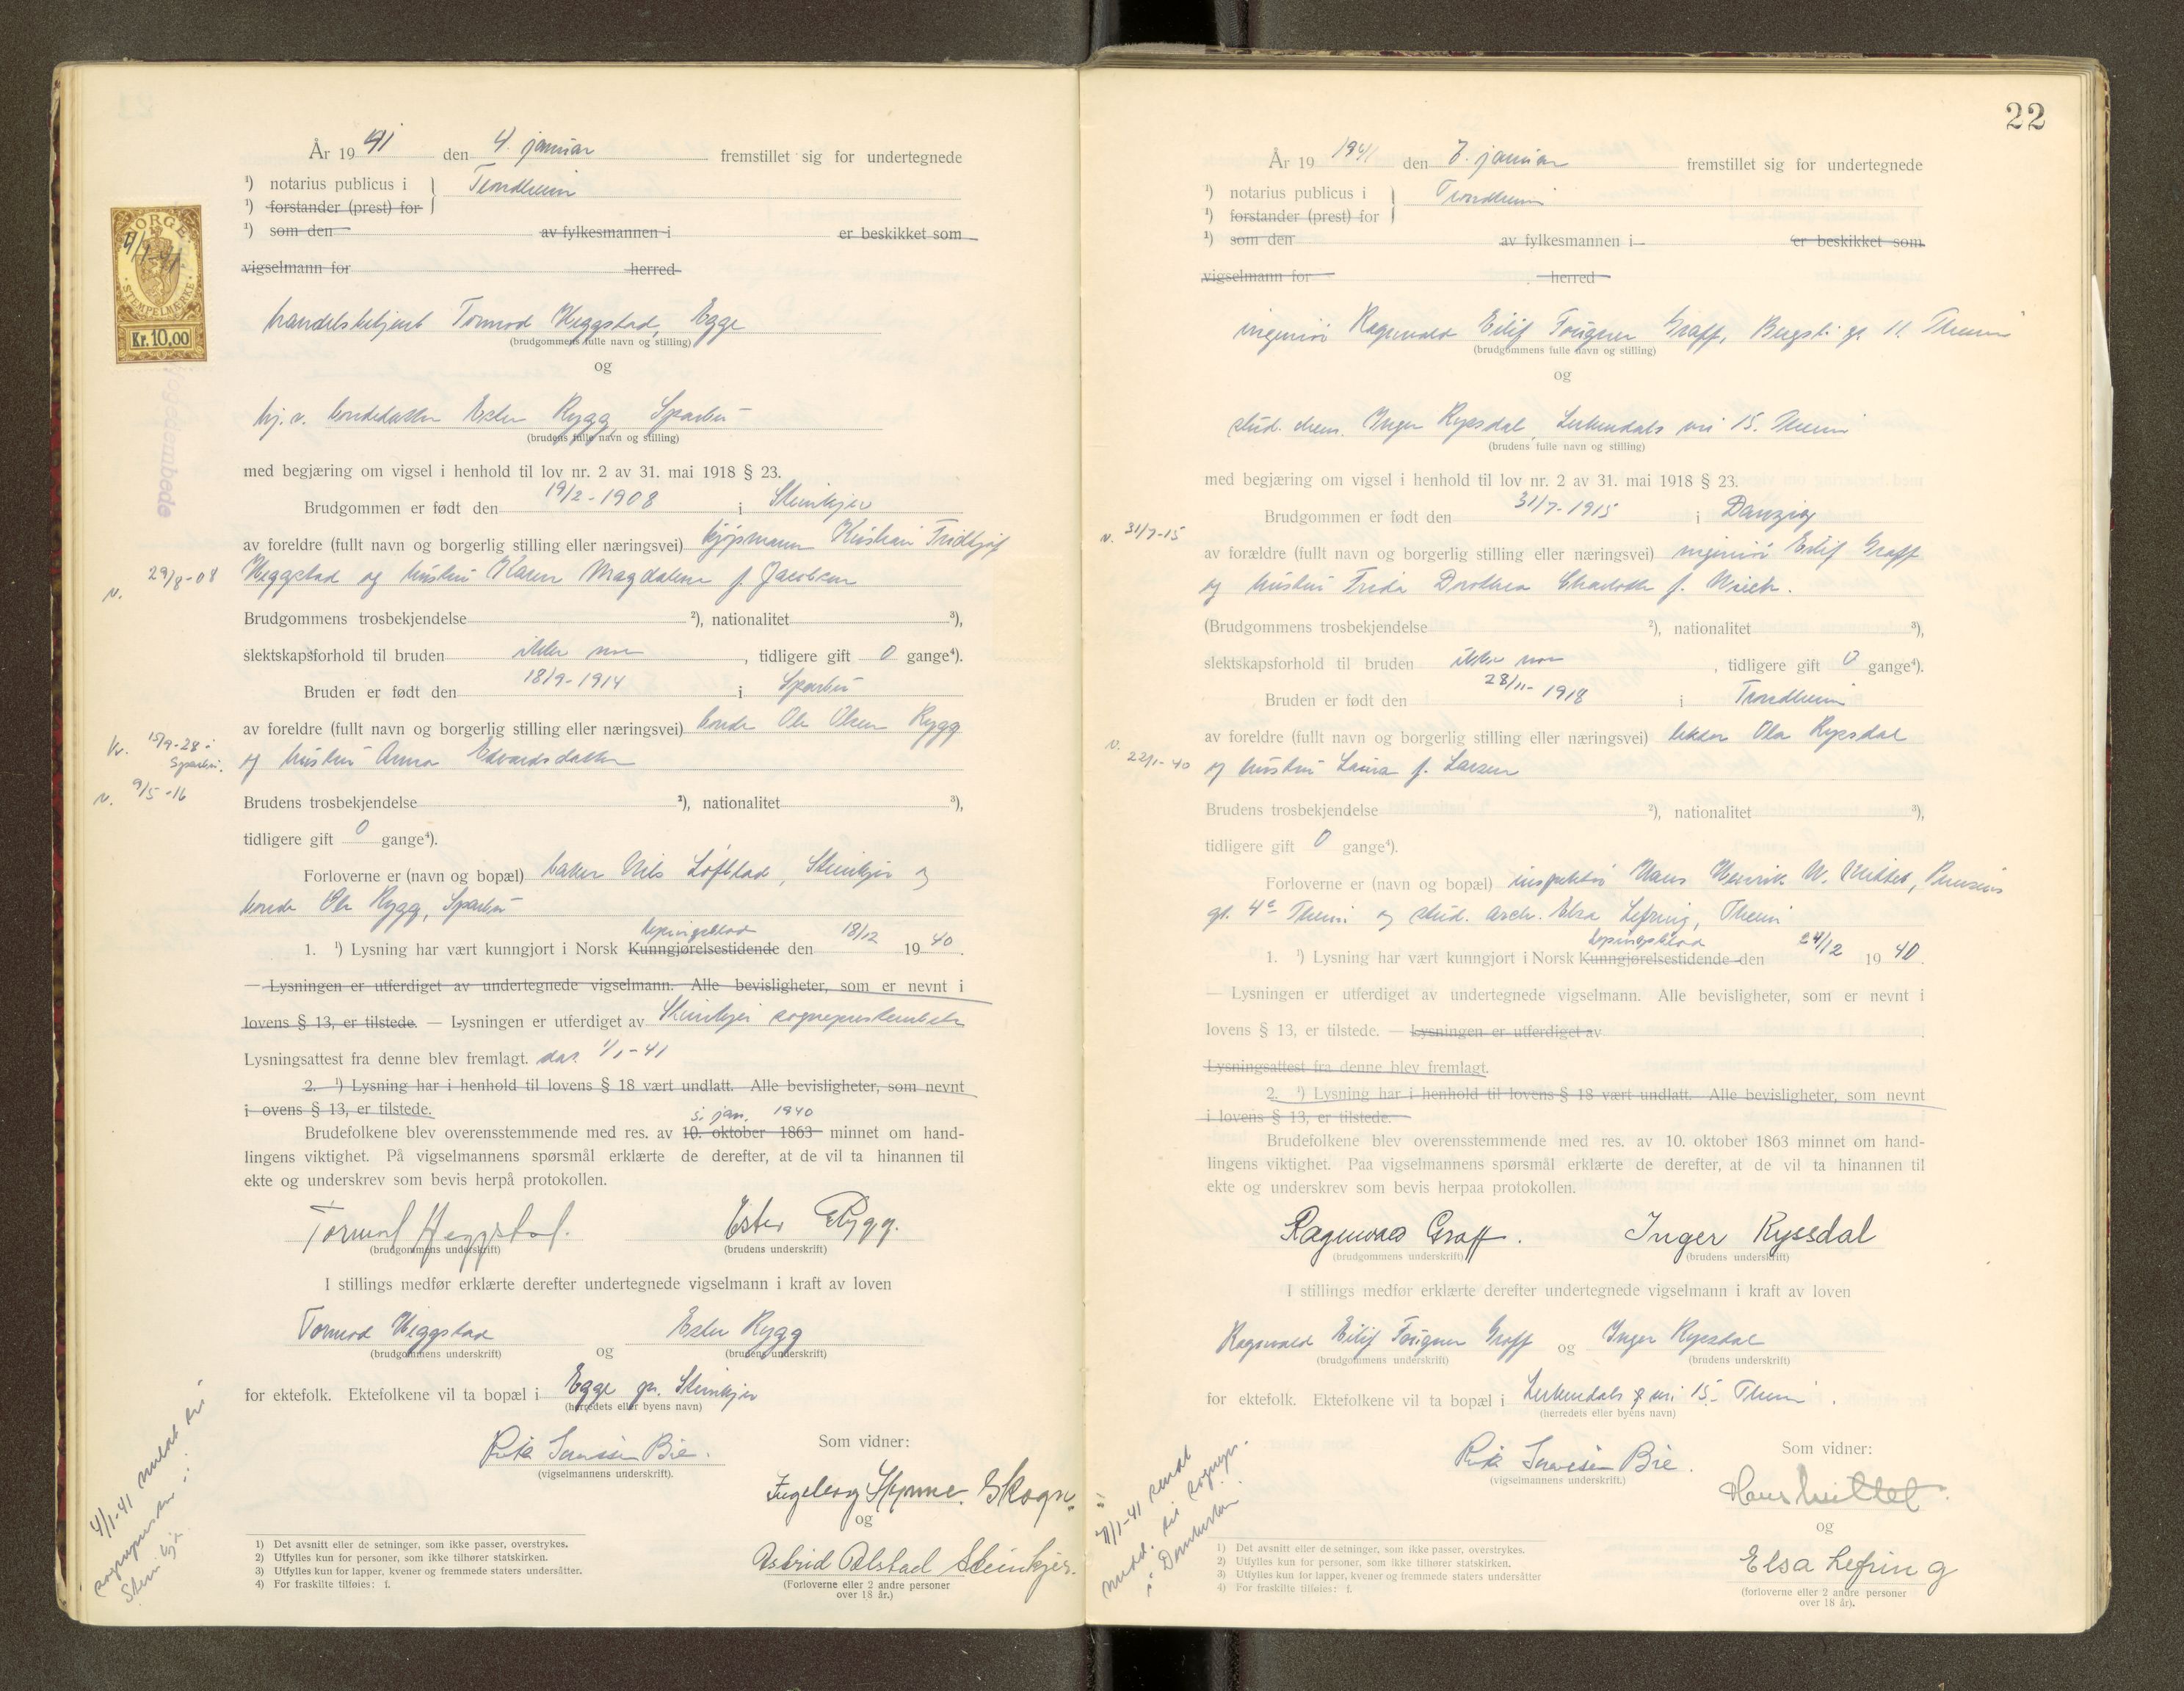 År 19 41 den 4. januar fremstillet sig for undertegnede
¹) notarius publicus i Trondheim
¹) forstander (prest) for
¹) som den av fylkesmannen i er beskikket som
vigselmann for herred
NORGE
4/1-41
STEMPELMÆRKE
Kr. 10,00
handelsbetjent Tormod Heggstad, Egge
(brudgommens fulle navn og stilling)
og
hj.v. bondedatter Ester Rygg, Sparbu
(brudens fulle navn og stilling)
med begjæring om vigsel i henhold til lov nr. 2 av 31. mai 1918 § 23.
Brudgommen er født den 19/2-1908 i Steinkjer
av foreldre (fullt navn og borgerlig stilling eller næringsvei) kjøpmann Kristian Fridtjof
v. 29/8-08 Heggstad og hustru Karen Magdalene f. Jacobsen
Brudgommens trosbekjendelse ²), nationalitet ³),
slektskapsforhold til bruden ikke noe, tidligere gift 0 gange⁴).
Bruden er født den 18/9-1914 i Sparbu
av foreldre (fullt navn og borgerlig stilling eller næringsvei) bonde Ole Olsen Rygg
k. 15/9-28 i Sparbu. og hustru Anna Edvardsdatter
v. 9/5-16
Brudens trosbekjendelse ²), nationalitet ³),
tidligere gift 0 gange⁴).
Forloverne er (navn og bopæl) baker Nils Løfblad, Steinkjer og
bonde Ole Rygg, Sparbu
1. ¹) Lysning har vært kunngjort i Norsk Kunngjørelsestidende lysingsblad den 18/12 19 40.
— Lysningen er utferdiget av undertegnede vigselmann. Alle bevisligheter, som er nevnt i
lovens § 13, er tilstede. — Lysningen er utferdiget av Steinkjer sogneprestembete
Lysningsattest fra denne blev fremlagt. dat. 1/1-41
2. ¹) Lysning har i henhold til lovens § 18 vært undlatt. Alle bevisligheter, som nevnt
i ovens § 13, er tilstede.
5. jan. 1940
Brudefolkene blev overensstemmende med res. av 10. oktober 1863 minnet om hand-
lingens viktighet. På vigselmannens spørsmål erklærte de derefter, at de vil ta hinannen til
ekte og underskrev som bevis herpå protokollen.
Tormod Heggstad. Ester Rygg.
(brudgommens underskrift) (brudens underskrift)
I stillings medfør erklærte derefter undertegnede vigselmann i kraft av loven
Tormod Heggstad og Ester Rygg
(brudgommens underskrift) (brudens underskrift)
for ektefolk. Ektefolkene vil ta bopæl i Egge pr. Steinkjer
(herredets eller byens navn)
Som vidner:
(vigselmannens underskrift).
Ingeborg Hynne. Skogn.
og
Astrid Alstad Steinkjer.
(Forloverne eller 2 andre personer
over 18 år.)
4/1-41 meldt til
sognepresten i
Steinkjer
1) Det avsnitt eller de setninger, som ikke passer, overstrykes.
2) Utfylles kun for personer, som ikke tilhører statskirken.
3) Utfylles kun for lapper, kvener og fremmede staters undersåtter.
4) For fraskilte tilføies: f.
22
År 19 1941 den 7. januar fremstillet sig for undertegnede
¹) notarius publicus i Trondheim
¹) forstander (prest) for
¹) som den av fylkesmannen i er beskikket som
vigselmann for herred
ingeniør Ragnvald Eilif Tougner Graff, Bergsli gt. 11. Theim
(brudgommens fulle navn og stilling)
og
stud. chem. Inger Ryssdal, Lerkendals vei 15. Theim
(brudens fulle navn og stilling)
med begjæring om vigsel i henhold til lov nr. 2 av 31. mai 1918 § 23.
Brudgommen er født den 31/7-1915 i Danzig
v. 31/7-15
av forældre (fullt navn og borgerlig stilling eller næringsvei) ingeniør Eilif Graff
og hustru Frida Dorothea Charlotte f.
(Brudgommens trosbekjendelse ²), nationalitet ³),
slektskapsforhold til bruden ikke noe, tidligere gift 0 gange⁴).
Bruden er født den 28/11-1918 i Trondheim
av foreldre (fullt navn og borgerlig stilling eller næringsvei) lektor Ola Ryssdal
v. 22/1-40 og hustru Laura f. Larsen
Brudens trosbekjendelse ²), nationalitet ³),
tidligere gift 0 gange⁴).
Forloverne er (navn og bopæl) inspektør Hans Henrik W. Huitfeldt,
gt. 4c Theim og stud. arch. Elsa Lefring, Theim
1. ¹) Lysning har vært kunngjort i Norsk Kunngjørelsestidende lysingsblad den 24/12 19 40.
— Lysningen er utferdiget av undertegnede vigselmann. Alle bevisligheter, som er nevnt i
lovens § 13, er tilstede. — Lysningen er utferdiget av
Lysningsattest fra denne blev fremlagt.
2. ¹) Lysning har i henhold til lovens § 18 vært undlatt. Alle bevisligheter, som nevnt
i lovens § 13, er tilstede.
Brudefolkene blev overensstemmende med res. av 10. oktober 1863 minnet om hand-
lingens viktighet. Paa vigselmannens spørsmål erklærte de derefter, at de vil ta hinannen til
ekte og underskrev som bevis herpaa protokollen.
Ragnvald Graff. Inger Ryssdal
(brudgommens underskrift) (brudens underskrift)
I stillings medfør erklærte derefter undertegnede vigselmann i kraft av loven
Ragnvald Eilif Tougner Graff og Inger Ryssdal
(brudgommens underskrift) (brudens underskrift)
for ektefolk. Ektefolkene vil ta bopæl i Lerkendals vei 15. Theim.
(herredets eller byens navn)
Som vidner:
(vigselmannens underskrift.)
Hans
og
Elsa Lefring
(forloverne eller 2 andre personer
over 18 år).
7/1-41 sendt
medd. til sognepr.
i Domkirken
1) Det avsnitt eller de setninger, som ikke passer, overstrykes.
2) Utfylles kun for personer, som ikke tilhører statskirken.
3) Utfylles kun for lapper, kvener og fremmede staters undersåtter
4) For fraskilte tilføies: f.